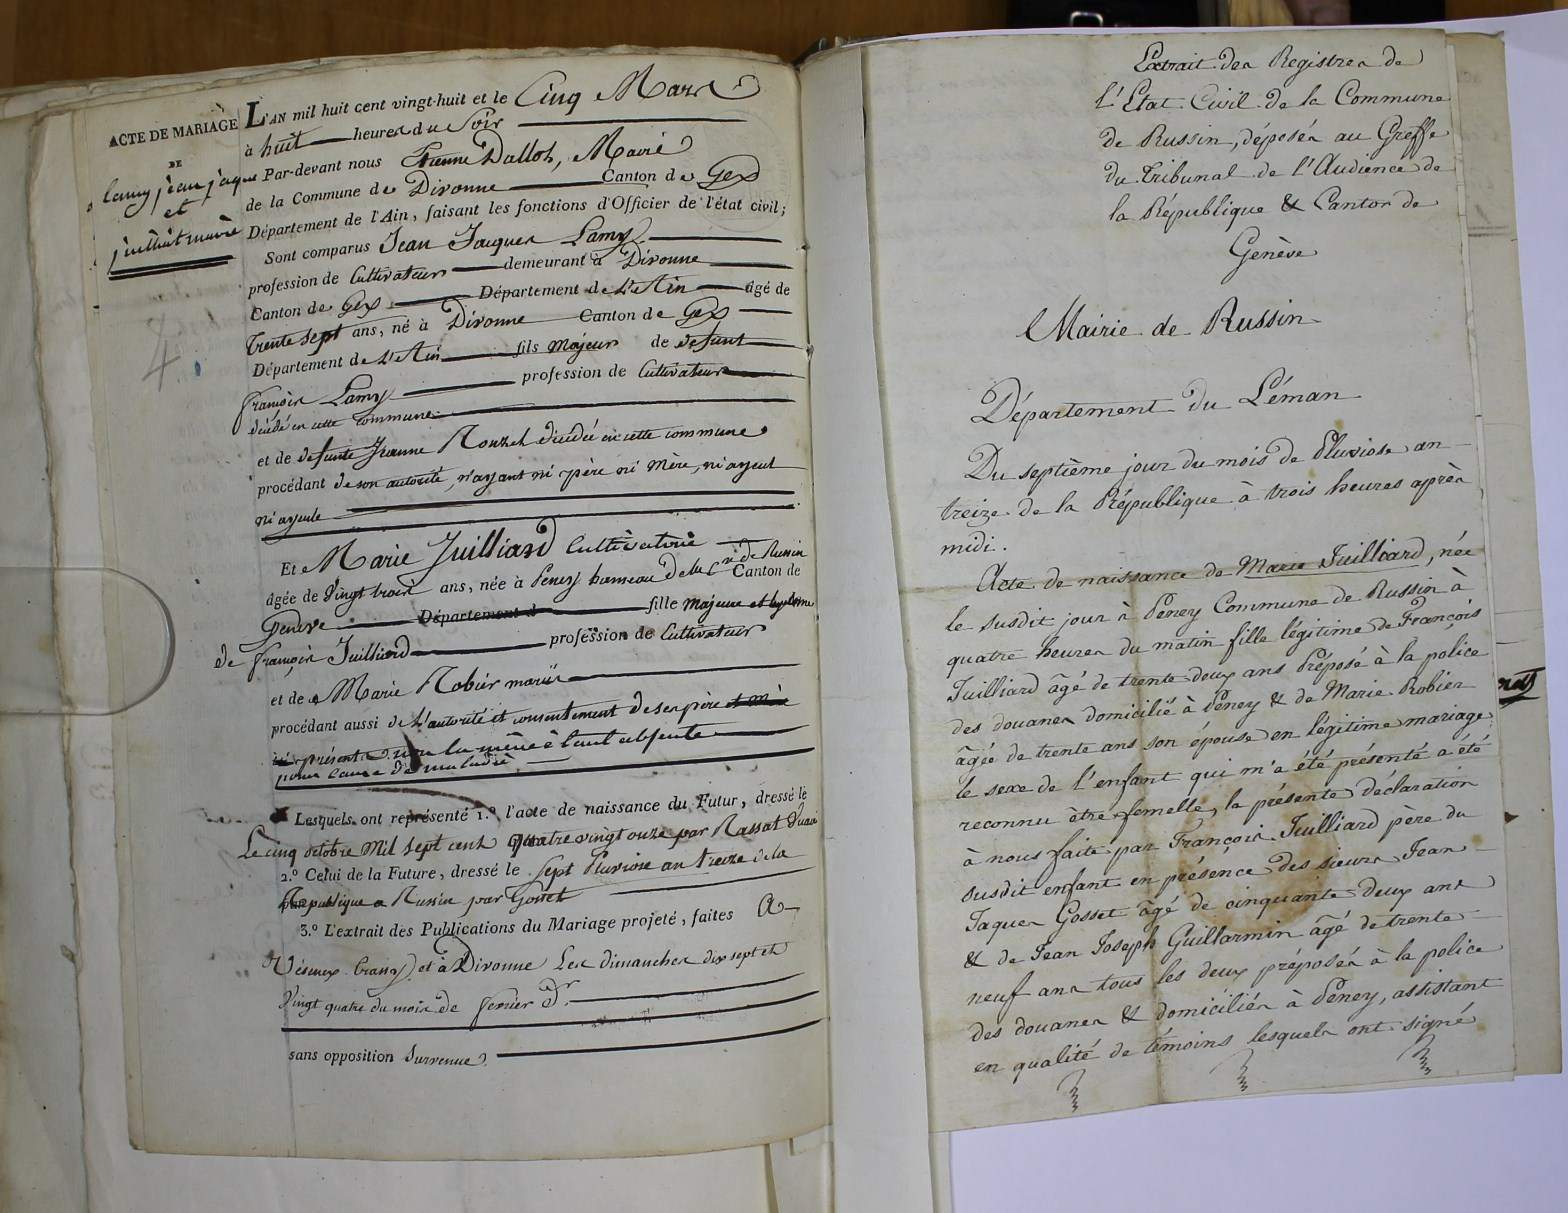 ACTE DE MARIAGE
DE
Lamy jean jaque
et
juilliat marie
L'AN mil huit cent vingt-huit et le Cinq Mars
à huit heures du Soir
Par-devant nous Etienne Dallos, Maire
de la Commune de Divonne Canton de Gex
Département de l'Ain, faisant les fonctions d'Officier de l'état civil;
Sont comparus Jean Jaques Lamy
profession de Cultivateur demeurant à Divonne
Canton de Gex Département de L'Ain âgé de
trente sept ans, né à Divonne Canton de Gex
Département de L'Ain fils Majeur de defunt
François Lamy profession de Cultivateur
décédé en cette commune
et de defunte Jeanne Rouzet décédée en cette commune
procédant de son autorité, n'ayant ni père ni mère, ni ayeul
ni ayeule
Et Marie Juilliard Cultivatrice
âgée de Vingt trois ans, née à Peney hameau de la Cne de Russin Canton de
Genève Département d fille Majeure et legitime
de françois Juilliard profession de Cultivateur
et de Marie Robier mariés
procédant aussi de L'autorité et consentement de ses père et mère
ici présents non la mère étant absente
pour cause de maladie
Lesquels ont représenté 1.° l'acte de naissance du Futur, dressé le
Le cinq octobre Mil sept cent quatre vingt onze par Rassat
2.° Celui de la Future, dressé le sept Pluviose an treize de la
République a Russin par Gosset
3.° L'extrait des Publications du Mariage projeté, faites A
Vésenex Crassy et à Divonne Les dimanches dix sept et
Vingt quatre du mois de fevrier dr.
sans opposition Survenue
4
Extrait des Registres de
l'Etat Civil de la Commune
de Russin, déposés au Greffe
du Tribunal de l'Audience de
la République & Canton de
Genève
Mairie de Russin
Département du Léman
Du septième jour du mois de Pluviose an
treize de la République à trois heures après
midi.
Acte de naissance de Marie Juilliard, née
le susdit jour à Peney Commune de Russin à
quatre heures du matin fille légitime de François
Juilliard âgé de trente deux ans Préposé à la police
des douanes domicilié à Peney & de Marie Robier
âgée de trente ans son épouse en légitime mariage
le sexe de l'enfant qui m'a été présenté a été
reconnu être femelle, la présente déclaration
à nous faite par François Juilliard père du
susdit enfant en présence des sieurs Jean
Jaques Gosset âgé de cinquante deux ans
& de Jean Joseph Guillarmin âgé de trente
neuf ans tous les deux préposés à la police
des douanes & domiciliés à Peney, assistant
en qualité de témoins lesquels ont signé